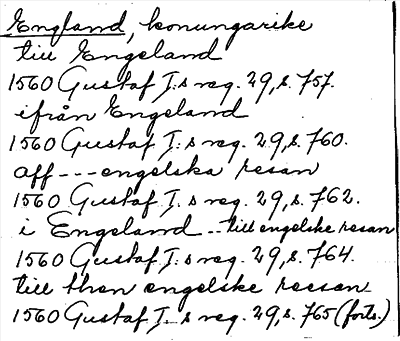 England, konungarike
till Engeland
1560 Gustaf I:s reg. 29, s. 757.
ifrån Engeland
1560 Gustaf I:s reg. 29, s. 760.
aff --- engelska resan
1560 Gustaf I:s reg. 29, s. 762.
i Engeland -- till engelske resan
1560 Gustaf I:s reg. 29, s. 764.
till then engelske reesan
1560 Gustaf I:s reg. 29, s. 765 (forts.)